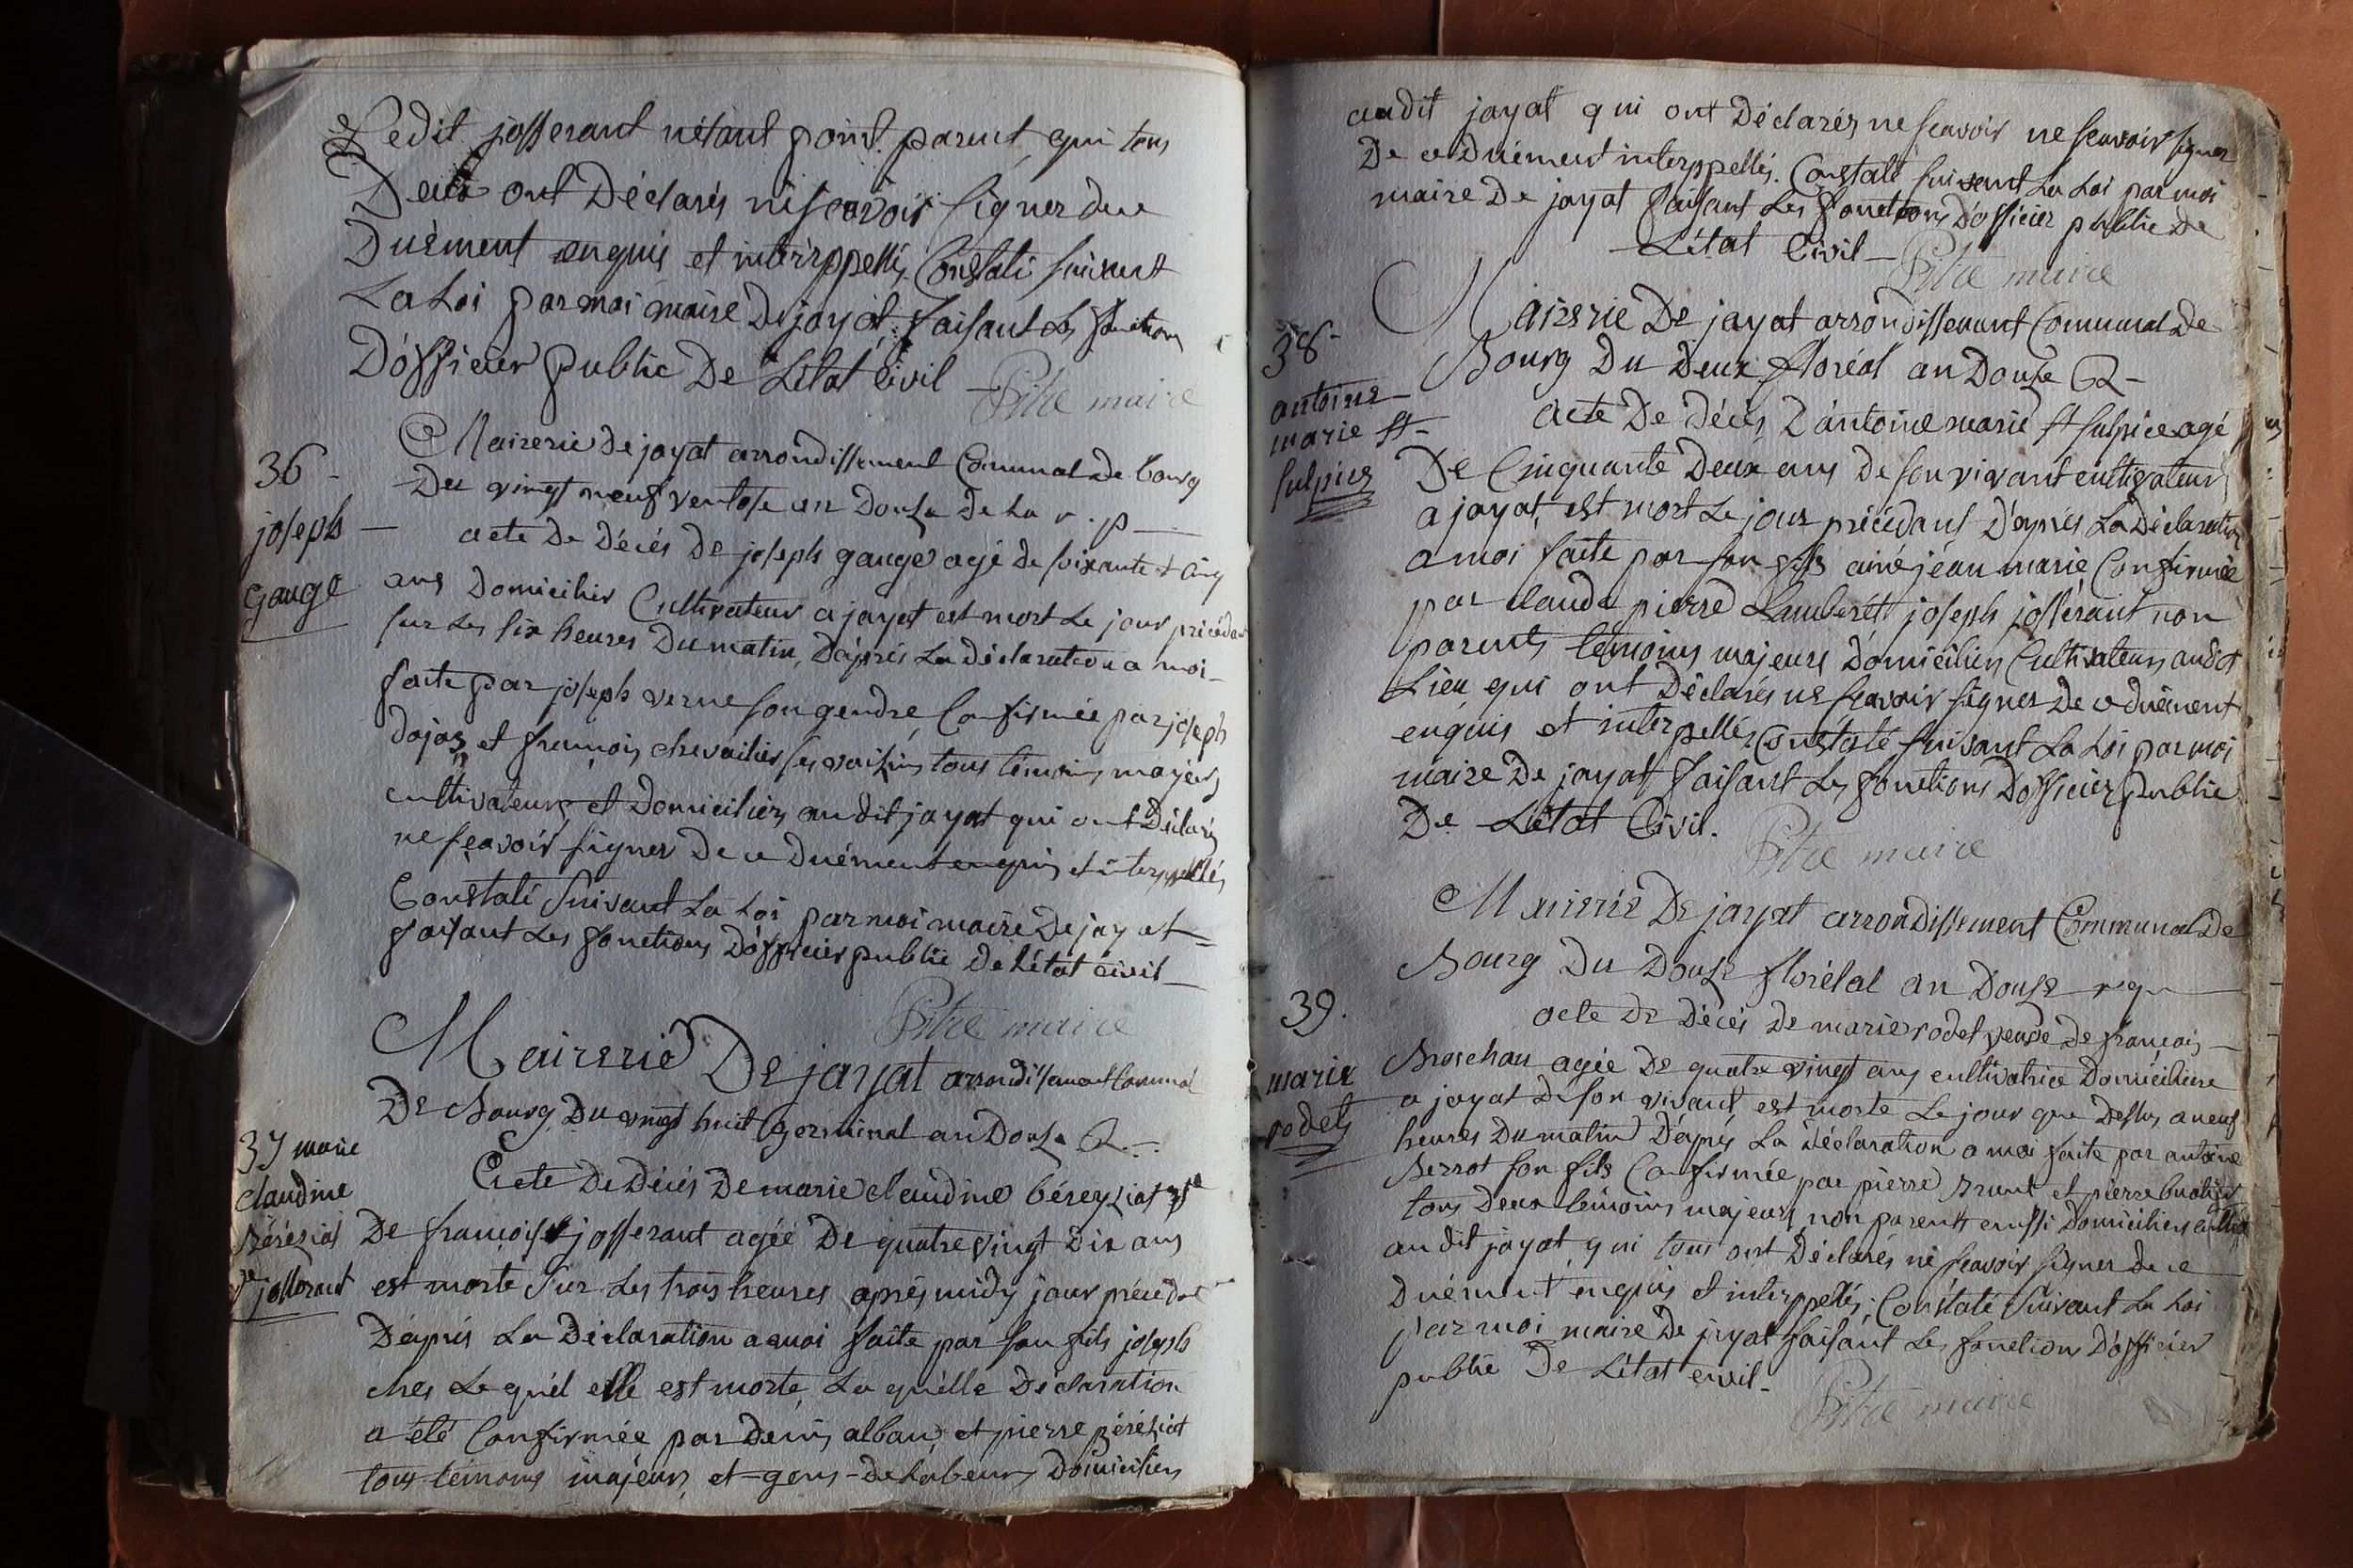 Ledit josserant n'étant point parent, qui tous
Deux ont Déclarés ne scavoir signer de ce
Duément enquis et interppellés. Constaté suivant
La Loi par moi maire De jayat, faisant les fonctions
D'officier public De L'état Civil
Pitre maire
36 -
joseph -
gauge
Mairerie De jayat arrondissement Communal De bourg
Du vingt neuf ventose an Douze De La r. p
acte De Décés De joseph gauge agé de soixante et cinq
ans Domicilier Cultivateur a jayat est mort Le jour précédent
sur Les six heures Du matin, D'après La Déclaration a moi
faite par joseph verne son gendre, Confirmée par joseph
dojas et francois chevailier ses voisins tous témoins majeurs
cultivateurs et Domiciliers audit jayat qui ont Déclarés
ne scavoir signer De ce Duément enquis et interppellés
Constaté suivant La Loi par moi maire De jayat
faisant Les fonctions D'officier public De L'état civil
Pitre maire
Mairerie De jayat arrondissement Communal
De Bourg, Du vingt huit Germinal an Douze R.
37 marie
claudine
Béréziat
ve josserant
Acte De Décés De marie claudine béreyziat ve
De francois josserant agée De quatre vingt Dix ans
est morte sur Les trois heures après midy jour précédent
D'après La Déclaration a moi faite par son fils joseph
ches Lequ'el elle est morte, Laqu'elle Déclaration
a été Confirmée par Denis alban, et pierre béréziat
tous témoins majeurs, et gens De Labeurs Domiciliers
audit jayat qui ont Déclarés ne scavoir ne scavoir signer
De ce Duément interppellés. Constaté suivant La Loi par moi
maire De jayat faisant Les fonctions D'officier public De
L'état Civil
Pitre maire
38 -
antoine -
marie st -
sulpice
Mairerie De jayat arrondissement Communal De
Bourg Du Deux floréal an Douze R -
acte De Décés D'antoine marie st sulpice agé
De Cinquante Deux ans De son vivant cultivateur
a jayat, est mort Le jour précédant D'après La Déclaration
a moi faite par son fils ainé jéan marie, Confirmée
par claude pierre Lambérét joseph josserant non
parents témoins majeurs Domiciliers Cultivateurs audit
Lieu qui ont Déclarés ne scavoir signer De ce duément
enquis et interpellés. Constaté suivant La Loi par moi
maire De jayat faisant Les fonctions D'officier public
De L'état Civil.
Pitre maire
Mairerie De jayat arrondissement Communal De
Bourg Du Douze floréal an Douze
39.
marie
rodet
acte De Décés De marie rodet veuve De francois
Brochan agée De quatre vingt ans cultivatrice Domiciliere
a jayat De son vivant, est morte Le jour que Dessus a neuf
heures Du matin D'après La Déclaration a moi faite par antoine
son fils Confirmée par pierre Brunet et pierre
tous Deux témoins majeurs non parents aussi Domiciliers
audit jayat, qui tous ont Déclarés ne scavoir signer de ce
Duément enquis et interppellés, Constaté suivant La Loi
par moi maire De jayat faisant Les fonctions D'officier
public De L'état civil -
Pitre maire